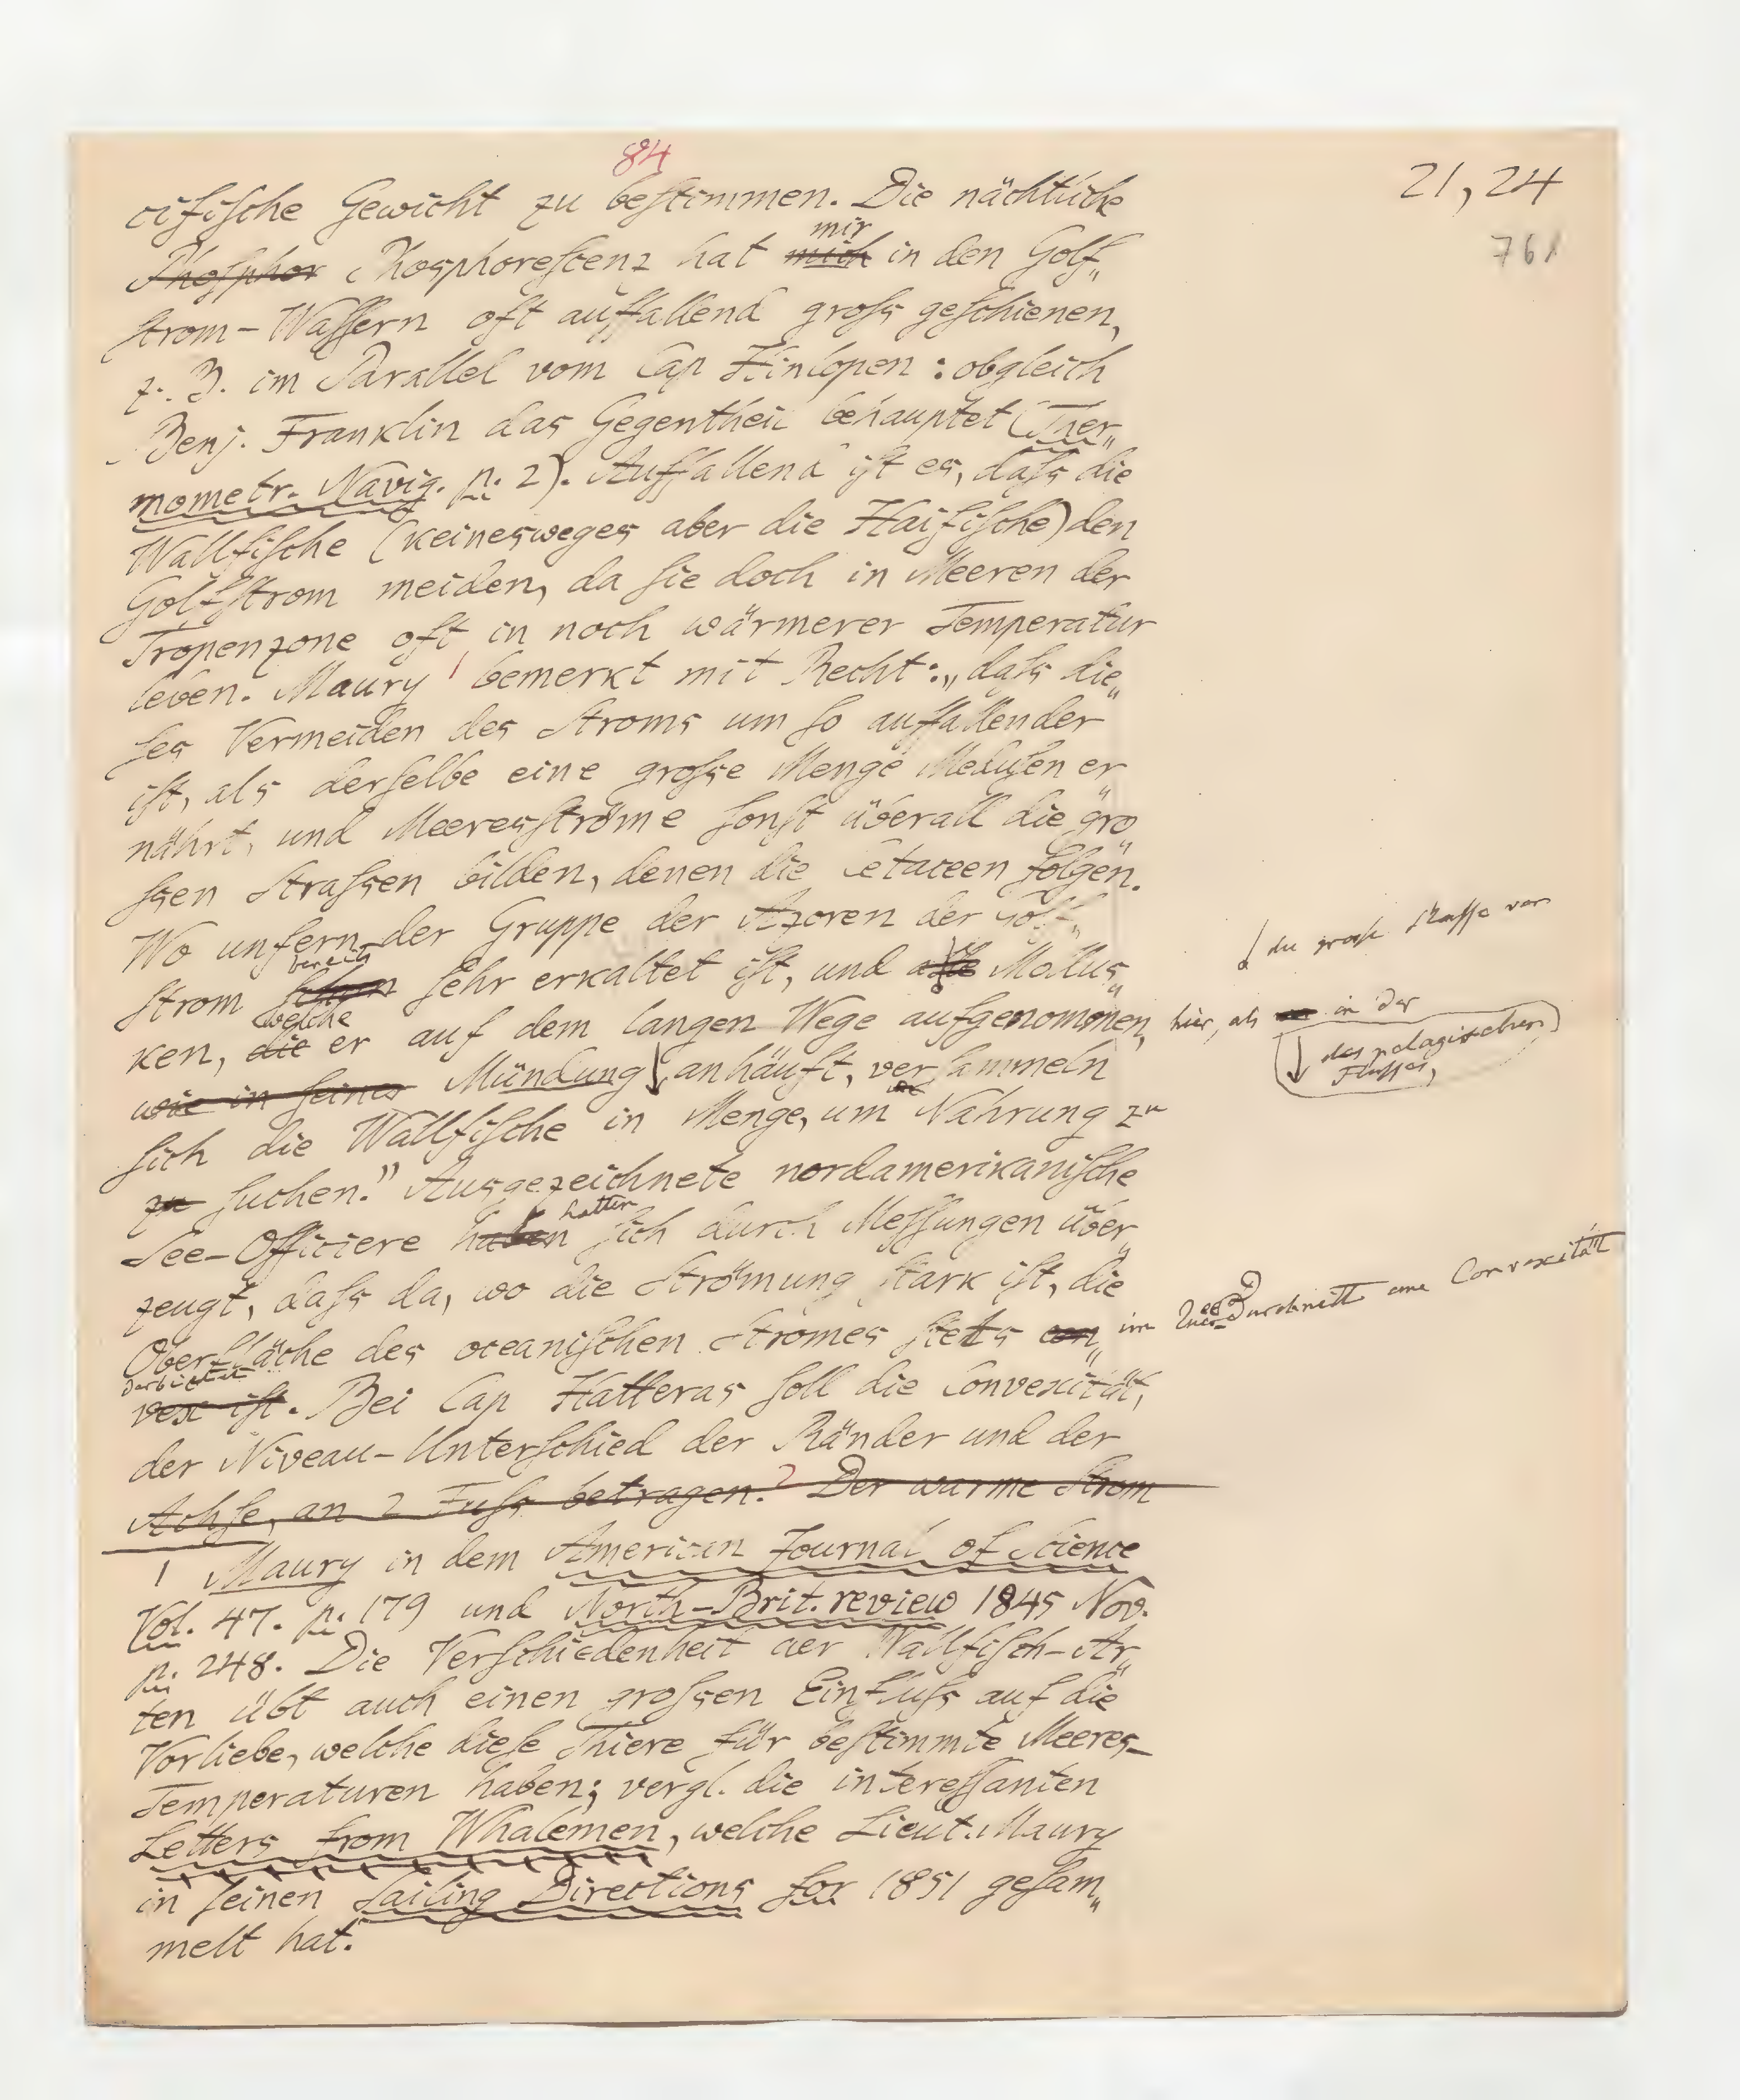 84
21,24
761
cifische Gewicht zu bestimmen. Die nächtliche
Phosphor Phosphorescenz hat mich mir in den Golf„
strom-Wassern oft auffallend gross geschienen,
z. B. im Parallel vom Cap Hinlopen: obgleich
Benj. Franklin das Gegentheil behauptet (Ther„
mometr. Navig. p. 2). Auffallend ist es, dass die
Wallfische (keinesweges aber die Haifische) den
Golfstrom meiden, da sie doch in Meeren der
Tropenzone oft in noch wärmerer Temperatur
leben. Maury 1 bemerkt mit Recht: „dass die„
ses Vermeiden des Stroms um so auffallender
ist, als derselbe eine grosse Menge Medusen er„
nährt, und Meeresströme sonst überall die gro„
ssen Strassen bilden, denen die Cetaceen folgen.
Wo unfern der Gruppe der Azoren der Golf„
strom schon bereits sehr erkaltet ist, und alle die grosse Masse von Mollus„
ken, die welche er auf dem langen Wege aufgenommen, hier, als in der
wie in seiner Mündung des pelagischen Flusses, anhäuft, versammeln
sich die Wallfische in Menge, um Nahrung zu
zu suchen." Ausgezeichnete nordamerikanische
See-Officiere haben hatten sich durch Messungen über„
zeugt, dass da, wo die Strömung stark ist, die
Oberfläche des oceanischen Stromes stets con„ im Quer-Durchnitt eine Convexität
vex ist darbietet. Bei Cap Hatteras soll die Convexität,
der Niveau-Unterschied der Ränder und der
Achse, an 2 Fuss betragen. 2 Der warme Strom
1 Maury in dem American Journal of Science
Vol. 47. p. 179 und North-Brit. review 1845 Nov.
p. 248. Die Verschiedenheit der Wallfisch-Ar„
ten übt auch einen grossen Einfluss auf die
Vorliebe, welche diese Thiere für bestimmte Meeres-
Temperaturen haben; vergl. die interessanten
Letters from Whalemen, welche Lieut. Maury
in seinen Sailing Directions for 1851 gesam„
melt hat.